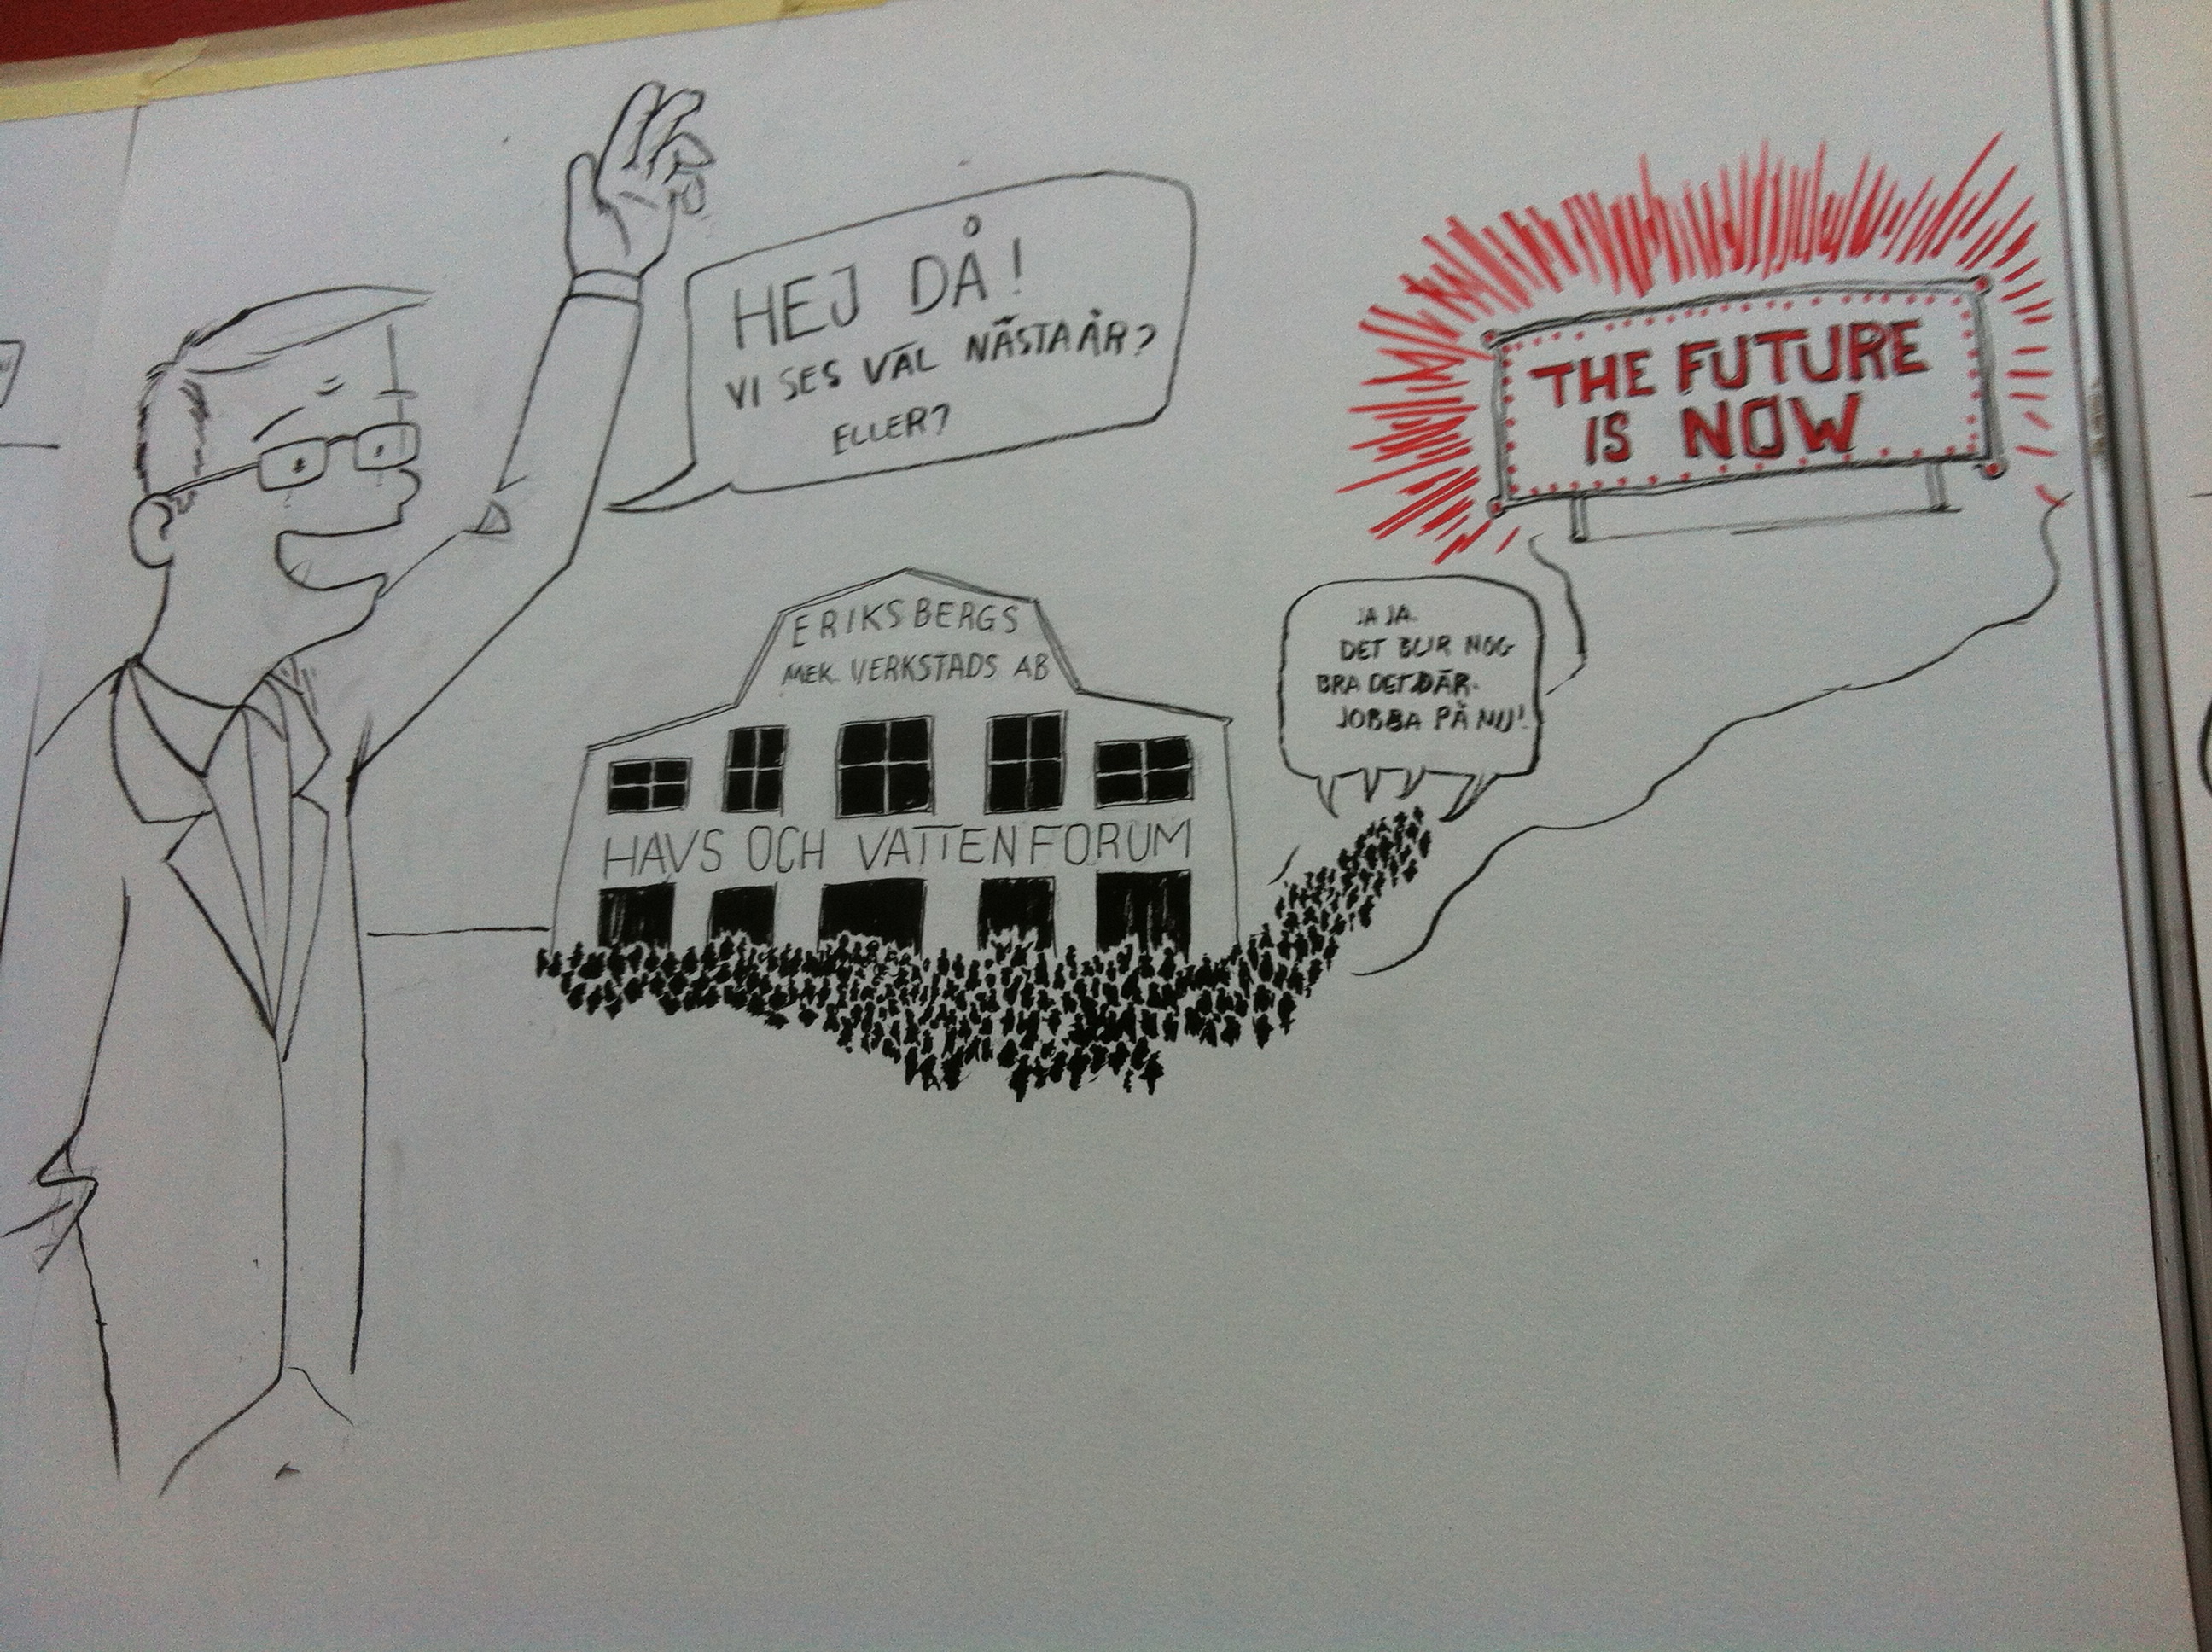 HEJ DÅ!
VI SES VÄL NÄSTA ÅR?
ELLER?
THE FUTURE
IS NOW
ERIKSBERGS
MEK. VERKSTADS AB
HAVS OCH VATTENFORUM
JA JA.
DET BLIR NOG
BRA DET DÄR.
JOBBA PÅ NU!